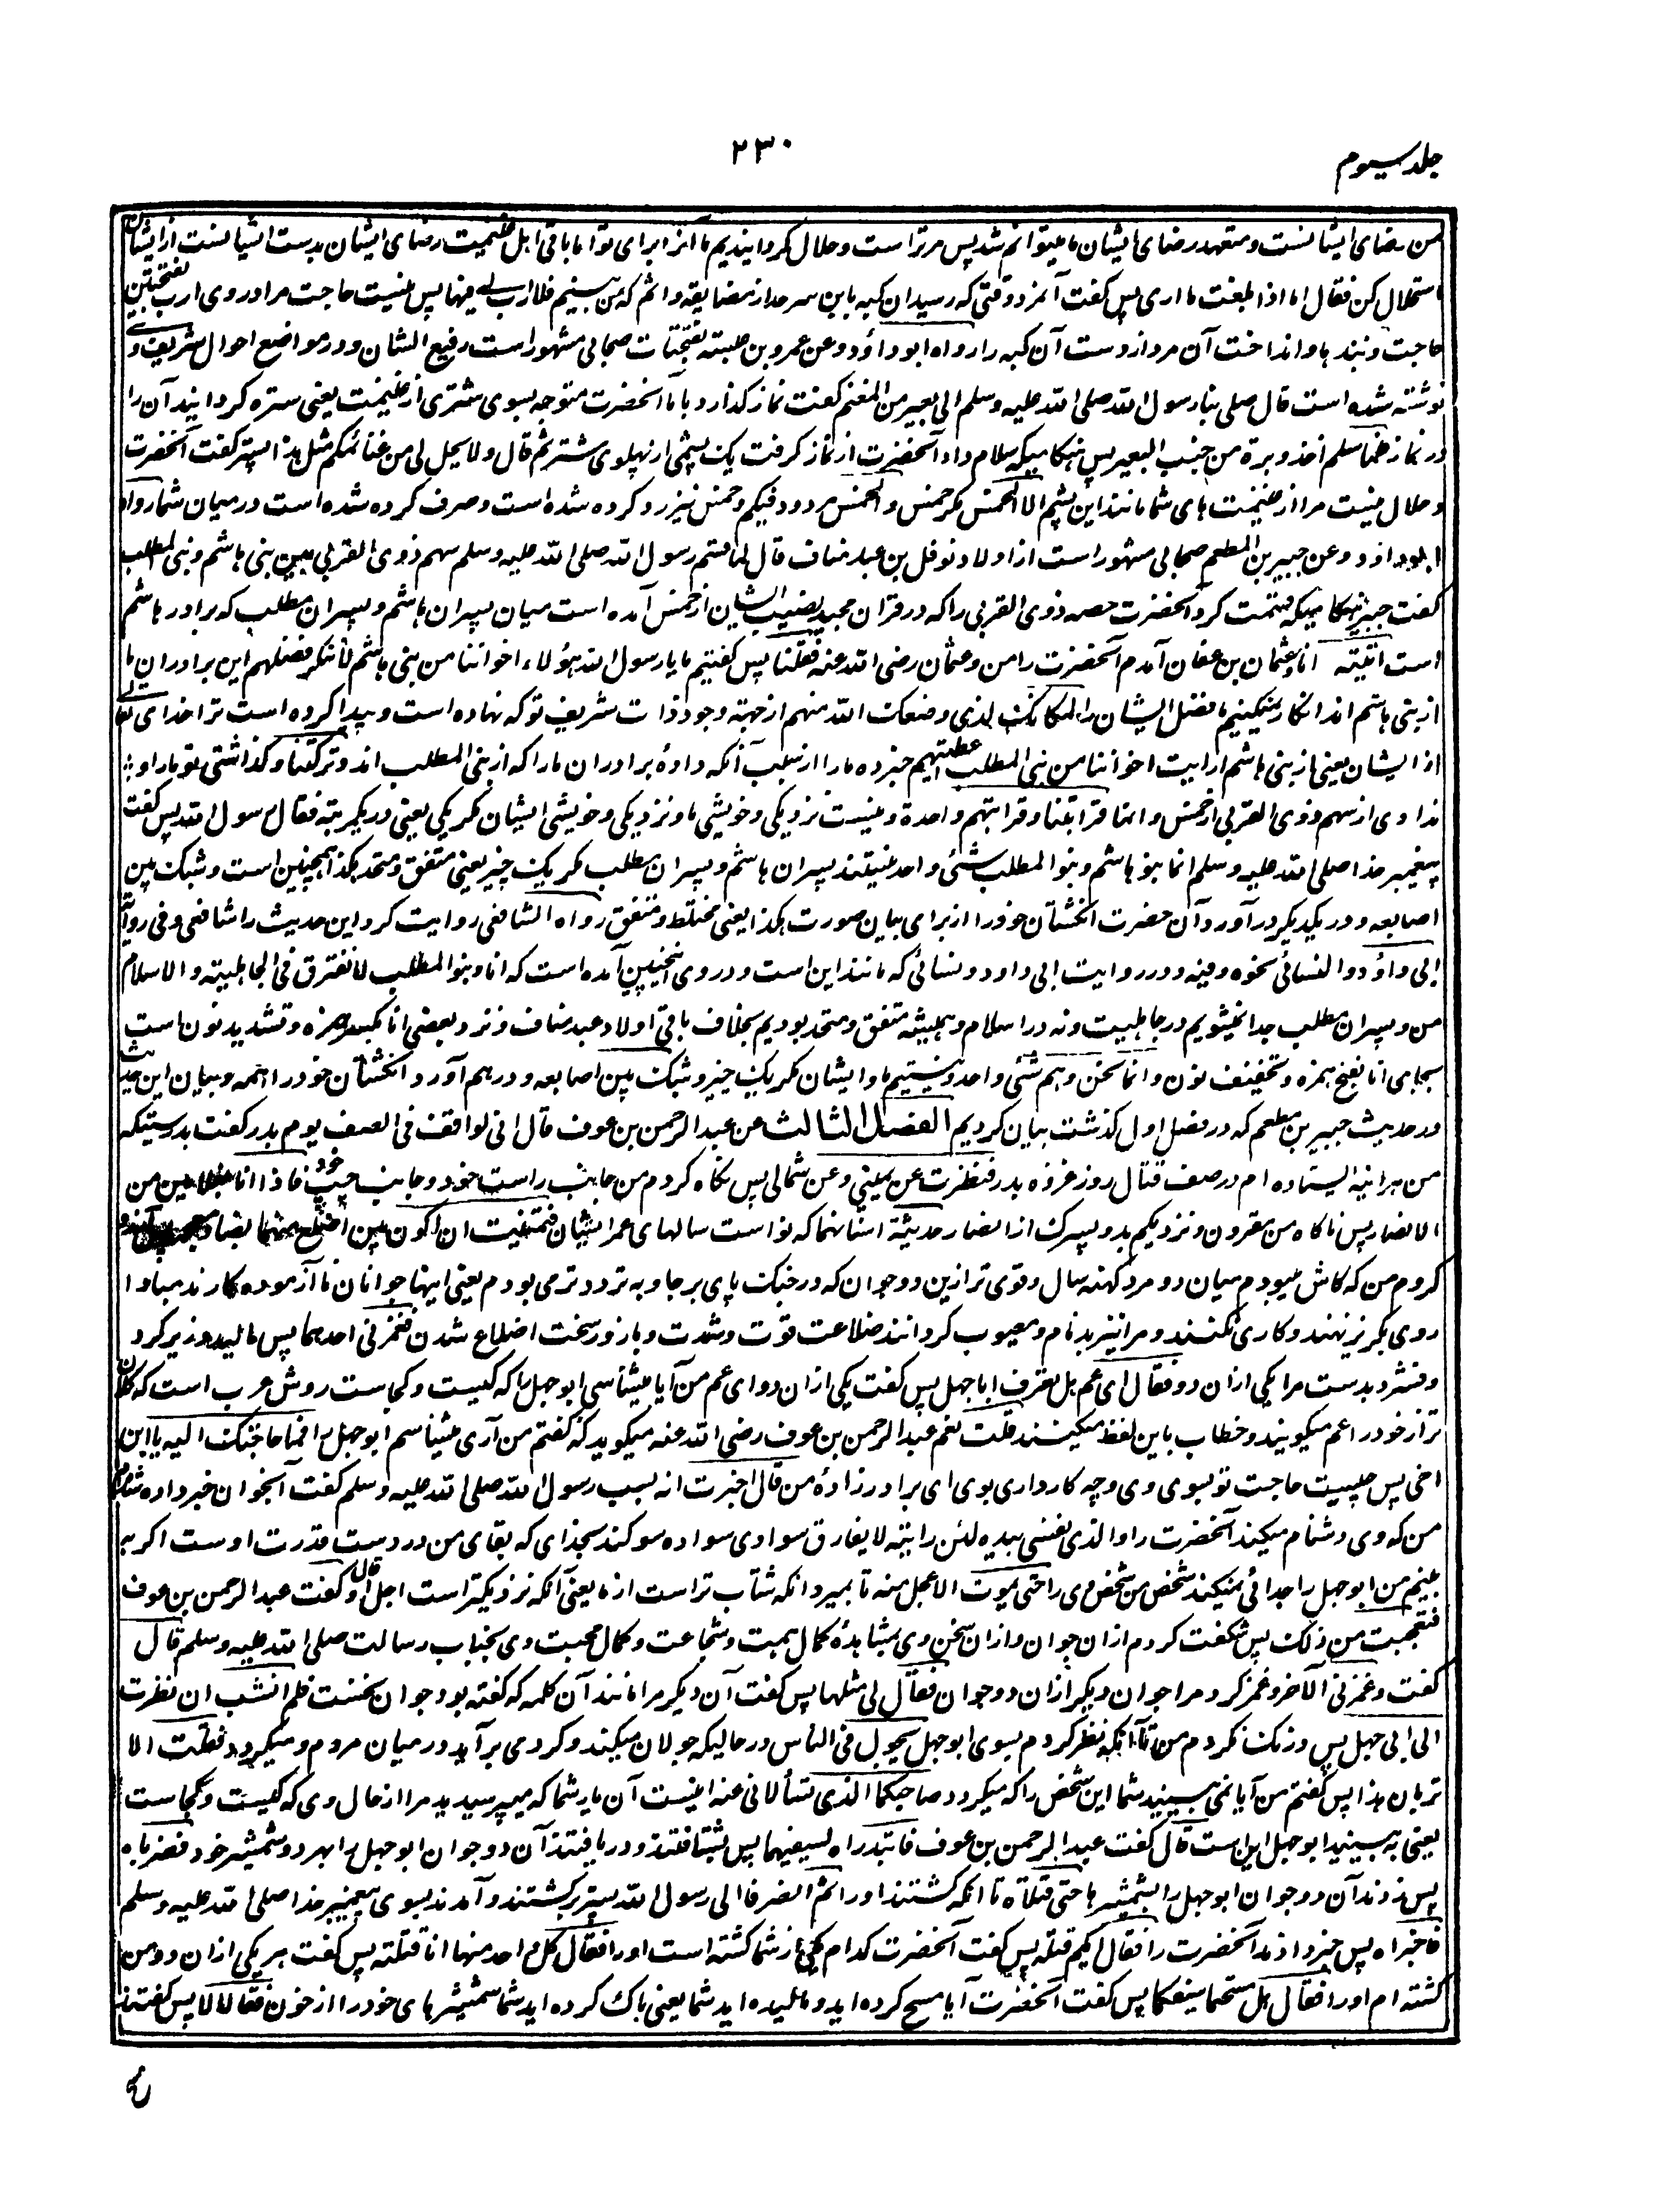 جلد سیوم
۲۳۰
من رضای ایشانست و متعهد رضای ایشان ما میتوانم شد پس مر تراست و حلال گردانیدیم ما آنرا برای تو اما باقی اهل غنیمت رضای ایشان بدست ایشانست از ایشان
استحلال کن فقال اما اذا بلغت ما اری پس گفت آنمرد وقتی که رسید آن کبه باین سرحد از مضایقه و اثم که می بینیم فلا ارب لی فیها پس نیست حاجت مرا در وی ارب بفتحتین
حاجت و نبذها و انداخت آن مرد از دست آن کبه را رواه ابو داؤد وعن عمرو بن عبسة بفتحات صحابی مشهور است رفیع الشان و در مواضع احوال شریف وی
نوشته شده است قال صلی بنا رسول الله صلی الله علیه وسلم الی بعیر من المغنم گفت نماز گذارد با ما آنحضرت متوجه بسوی شتری از غنیمت یعنی ستره گردانید آن را
در نماز فلما سلم اخذ وبرة من جنب البعیر پس هنگامیکه سلام داد آنحضرت از نماز گرفت یک پشمی از پهلوی شتر ثم قال ولا یحل لی من غنائمکم مثل هذا پستر گفت آنحضرت
و حلال نیست مرا از غنیمت های شما مانند این پشم الا الخمس مگر خمس و الخمس مردود فیکم و خمس نیز رد کرده شده است و صرف کرده شده است در میان شما رواه
ابو داؤد وعن جبیر بن المطعم صحابی مشهور است از اولاد نوفل بن عبد مناف قال لما قسم رسول الله صلی الله علیه وسلم سهم ذوی القربی بین بنی هاشم وبنی المطلب
گفت جبیر هنگامیکه قسمت کرد آنحضرت حصه ذوی القربی را که در قرآن مجید نصیب ایشان از خمس آمده است میان پسران هاشم و پسران مطلب که برادر هاشم
است اتیته انا وعثمان بن عفان آمدم آنحضرت را من و عثمان رضی الله عنه فقلنا پس گفتیم ما یا رسول الله هؤلاء اخواننا من بنی هاشم لا ننکر فضلهم این برادران ما
از بنی هاشم اند انکار نمیکنیم ما فضل ایشان را لمکانک الذی وضعک الله منهم از جهته وجود ذات شریف تو که نهاده است و پیدا کرده است ترا خدای تعالی
از ایشان یعنی از بنی هاشم ارایت اخواننا من بنی المطلب اعطیتهم خبر ده ما را از سبب آنکه دادهٔ برادران ما را که از بنی المطلب اند وترکتنا و گذاشتی تو ما را و
نداوی از سهم ذوی القربی از خمس وانما قرابتنا وقرابتهم واحدة و نیست نزدیکی و خویشی ما و نزدیکی و خویشی ایشان مگر یکی یعنی در یکمرتبه فقال رسول الله پس گفت
پیغمبر خدا صلی الله علیه وسلم انما بنو هاشم وبنو المطلب شیٔ واحد نیستند پسران هاشم و پسران مطلب مگر یک چیز یعنی متفق و متحد هکذا همچنین است وشبک بین
اصابعه و در یکدیگر درآورد آن حضرت انگشتان خود را از برای بیان صورت هکذا یعنی مختلط و متفق رواه الشافعی روایت کرد این حدیث را شافعی وفی روایة
ابی داؤد والنسائی نحوه وفیه و در روایت ابی داود و نسائی که مانند این است و در وی اینچنین آمده است که انا وبنو المطلب لا نفترق فی الجاهلیة والاسلام
من و پسران مطلب جدا نمیشویم در جاهلیت و نه در اسلام و همیشه متفق و متحد بودیم بخلاف باقی اولاد عبد مناف و نزد بعضی انا بکسر همزه و تشدید نون است
بجای انا بفتح همزه و تخفیف نون وانما نحن وهم شیٔ واحد و نیستیم ما و ایشان مگر یک چیز وشبک بین اصابعه و درهم آورد انگشتان خود را همه و بیان این حدیث
در حدیث جبیر بن مطعم که در فصل اول گذشت بیان کردیم الفصل الثالث عن عبد الرحمن بن عوف قال انی لواقف فی الصف یوم بدر گفت بدرستیکه
من هر آئنه ایستاده ام در صف قتال روز غزوه بدر فنظرت عن یمینی وعن شمالی پس نگاه کردم من جانب راست خود و جانب چپ خود فاذا انا بغلامین من
الانصار پس ناگاه من مقرون و نزدیکم بدو پسرک از انصار حدیثة اسنانهما که نو است سالهای عمر ایشان فتمنیت ان اکون بین اضلع منهما پس آرزو
کردم من که کاش میبودم میان دو مرد کهنه سال و قوی تر ازین دو جوان که در جنگ پای برجا و به تردد تر می بودم یعنی اینها جوانان ناآزموده کارند مبادا
روی بگریز نهند و کاری نکنند و مرا نیز بدنام و معیوب گردانند ضلاعت قوّت و شدت و بار زور سخت اضلاع شدن فغمزنی احدهما پس مالید و زیر کرد
و فشرد بدست مرا یکی ازان دو فقال ای عم هل تعرف ابا جهل پس گفت یکی ازان دو ای عم من آیا میشناسی ابو جهل را که کیست و کجاست روش عرب است که کلان
تر از خود را عم میگویند و خطاب باین لفظ میکنند قلت نعم عبد الرحمن بن عوف رضی الله عنه میگوید که گفتم من آری میشناسم ابو جهل را فما حاجتک الیه یا ابن
اخی پس چیست حاجت تو بسوی وی و چه کار داری بوی ای برادر زادهٔ من قال اخبرت انه یسب رسول الله صلی الله علیه وسلم گفت آنجوان خبر داده شده
من که وی دشنام میکند آنحضرت را والذی نفسی بیده لئن رایته لا یفارق سوادی سواده سوگند بخدای که بقای من در دست قدرت اوست اگر به
بینم من ابو جهل را جدائی نمیکند شخص من شخص وی را حتی یموت الاعجل منه تا بمیرد آنکه شتاب تر است از ما یعنی آنکه نزدیکتر است اجل او قال گفت عبد الرحمن بن عوف
فتعجبت من ذلک پس شگفت کردم ازان جوان و ازان سخن وی بمشاهدهٔ کمال همت و شجاعت و کمال محبت وی بجناب رسالت صلی الله علیه وسلم قال
گفت وغمزنی الآخر و غمز کرد مرا جوان دیگر ازان دو جوان فقال لی مثلها پس گفت آن دیگر مرا مانند آن کلمه که گفته بود جوان نخست فلم انشب ان نظرت
الی ابی جهل پس درنگ نکردم من تا آنکه نظر کردم بسوی ابو جهل یجول فی الناس در حالیکه جولان میکند و گرد می برآید در میان مردم و میگردد فقلت الا
تریان هذا پس گفتم من آیا نمی بینید شما این شخص را که میگردد صاحبکما الذی تسألانی عنه اینست آن یار شما که میپرسید مرا از حال وی که کیست و کجاست
یعنی به بینید ابو جهل این است قال گفت عبد الرحمن بن عوف فابتدراه بسیفیهما پس شتافتند و دریافتند آن دو جوان ابو جهل را بهر دو شمشیر خود فضرباه
پس زدند آن دو جوان ابو جهل را بشمشیرها حتی قتلاه تا آنکه کشتند او را ثم انصرفا الی رسول الله پستر برگشتند و آمدند بسوی پیغمبر خدا صلی الله علیه وسلم
فاخبراه پس خبر دادند آنحضرت را فقال ایکم قتله پس گفت آنحضرت کدام یکی از شما کشته است او را فقال کل واحد منهما انا قتلته پس گفت هر یکی ازان دو من
کشته ام او را فقال هل مسحتما سیفیکما پس گفت آنحضرت آیا مسح کرده اید و مالیده اید شما یعنی پاک کرده اید شما شمشیرهای خود را از خون فقالا لا پس گفتند